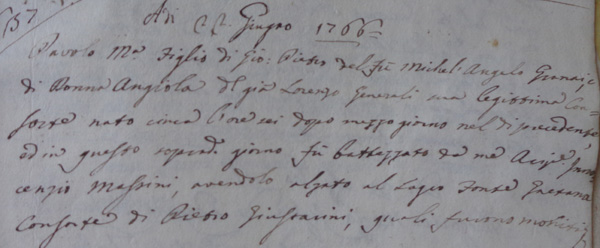 157
Adì 22 Giugno 1766
Pavolo Mª Figlio di Gio: Pietro del fù Michel' Angelo Granai, e
di Donna Angiola del già Lorenzo Generali sua legittima Con=
sorte nato circa l'ore sei dopo mezzo giorno nel dì precedente,
ed in questo sopradº giorno fù battezzato da me Inno=
cenzio Massini, avendolo alzato al Sagro Fonte Gaetana
Consorte di Pietro Giustarini, quali furono